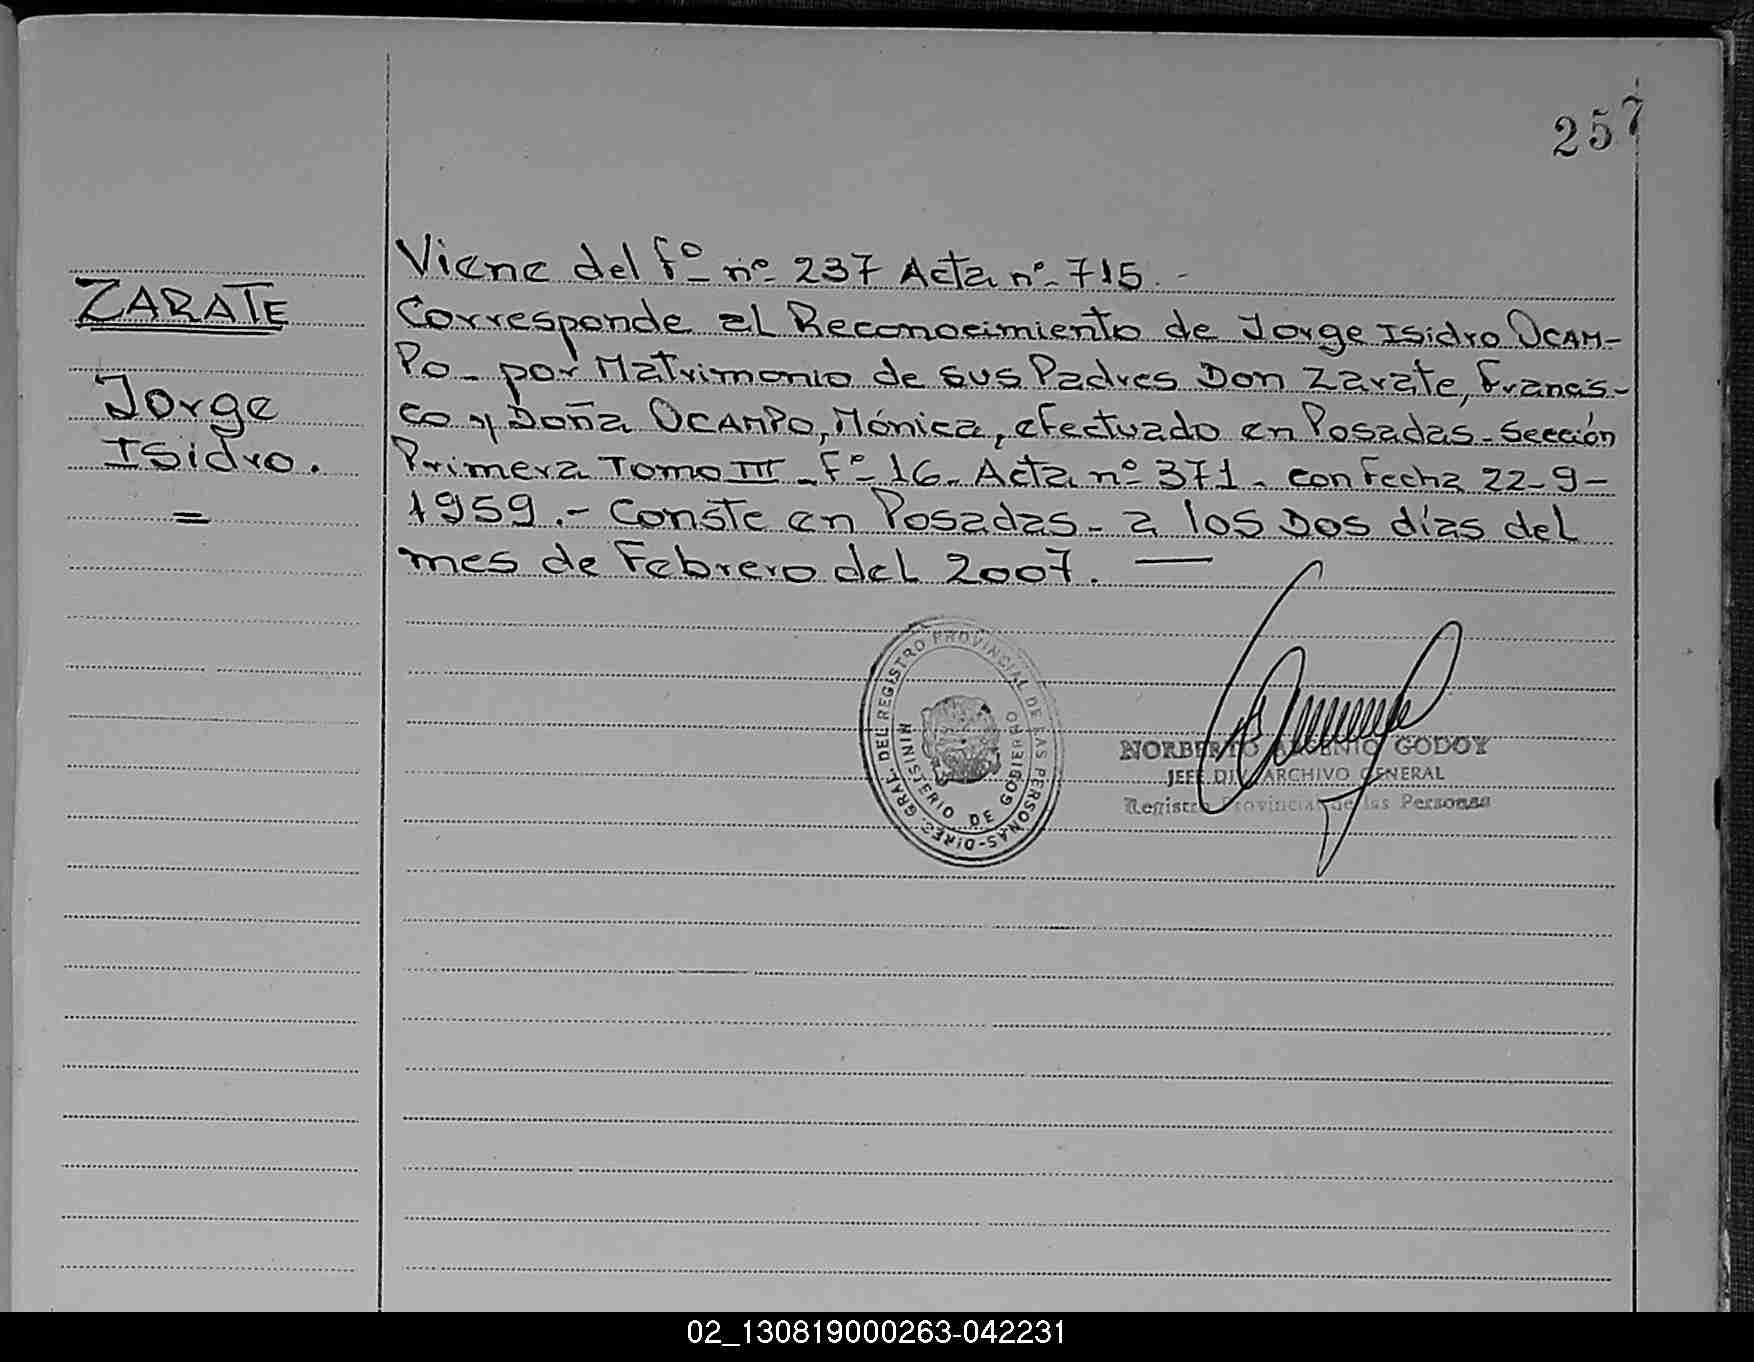 257
ZARATE
Jorge
Isidro.
=
Viene del fº nº 237 Acta nº 715.-
Corresponde al Reconocimiento de Jorge Isidro OCAM-
PO- por Matrimonio de sus Padres Don Zarate, Francis-
co y Doña OCAMPO, Mónica, efectuado en Posadas- Sección
Primera Tomo III - Fº 16- Acta nº 371- con fecha 22-9-
1959.- Conste en Posadas- a los Dos días del
mes de Febrero del 2007. —
DIREC. GRAL. DEL REGISTRO PROVINCIAL DE LAS PERSONAS-
MINISTERIO DE GOBIERNO
NORBERTO GODOY
JEFE DIV. ARCHIVO GENERAL
Registro Provincial de las Personas
02_130819000263-042231